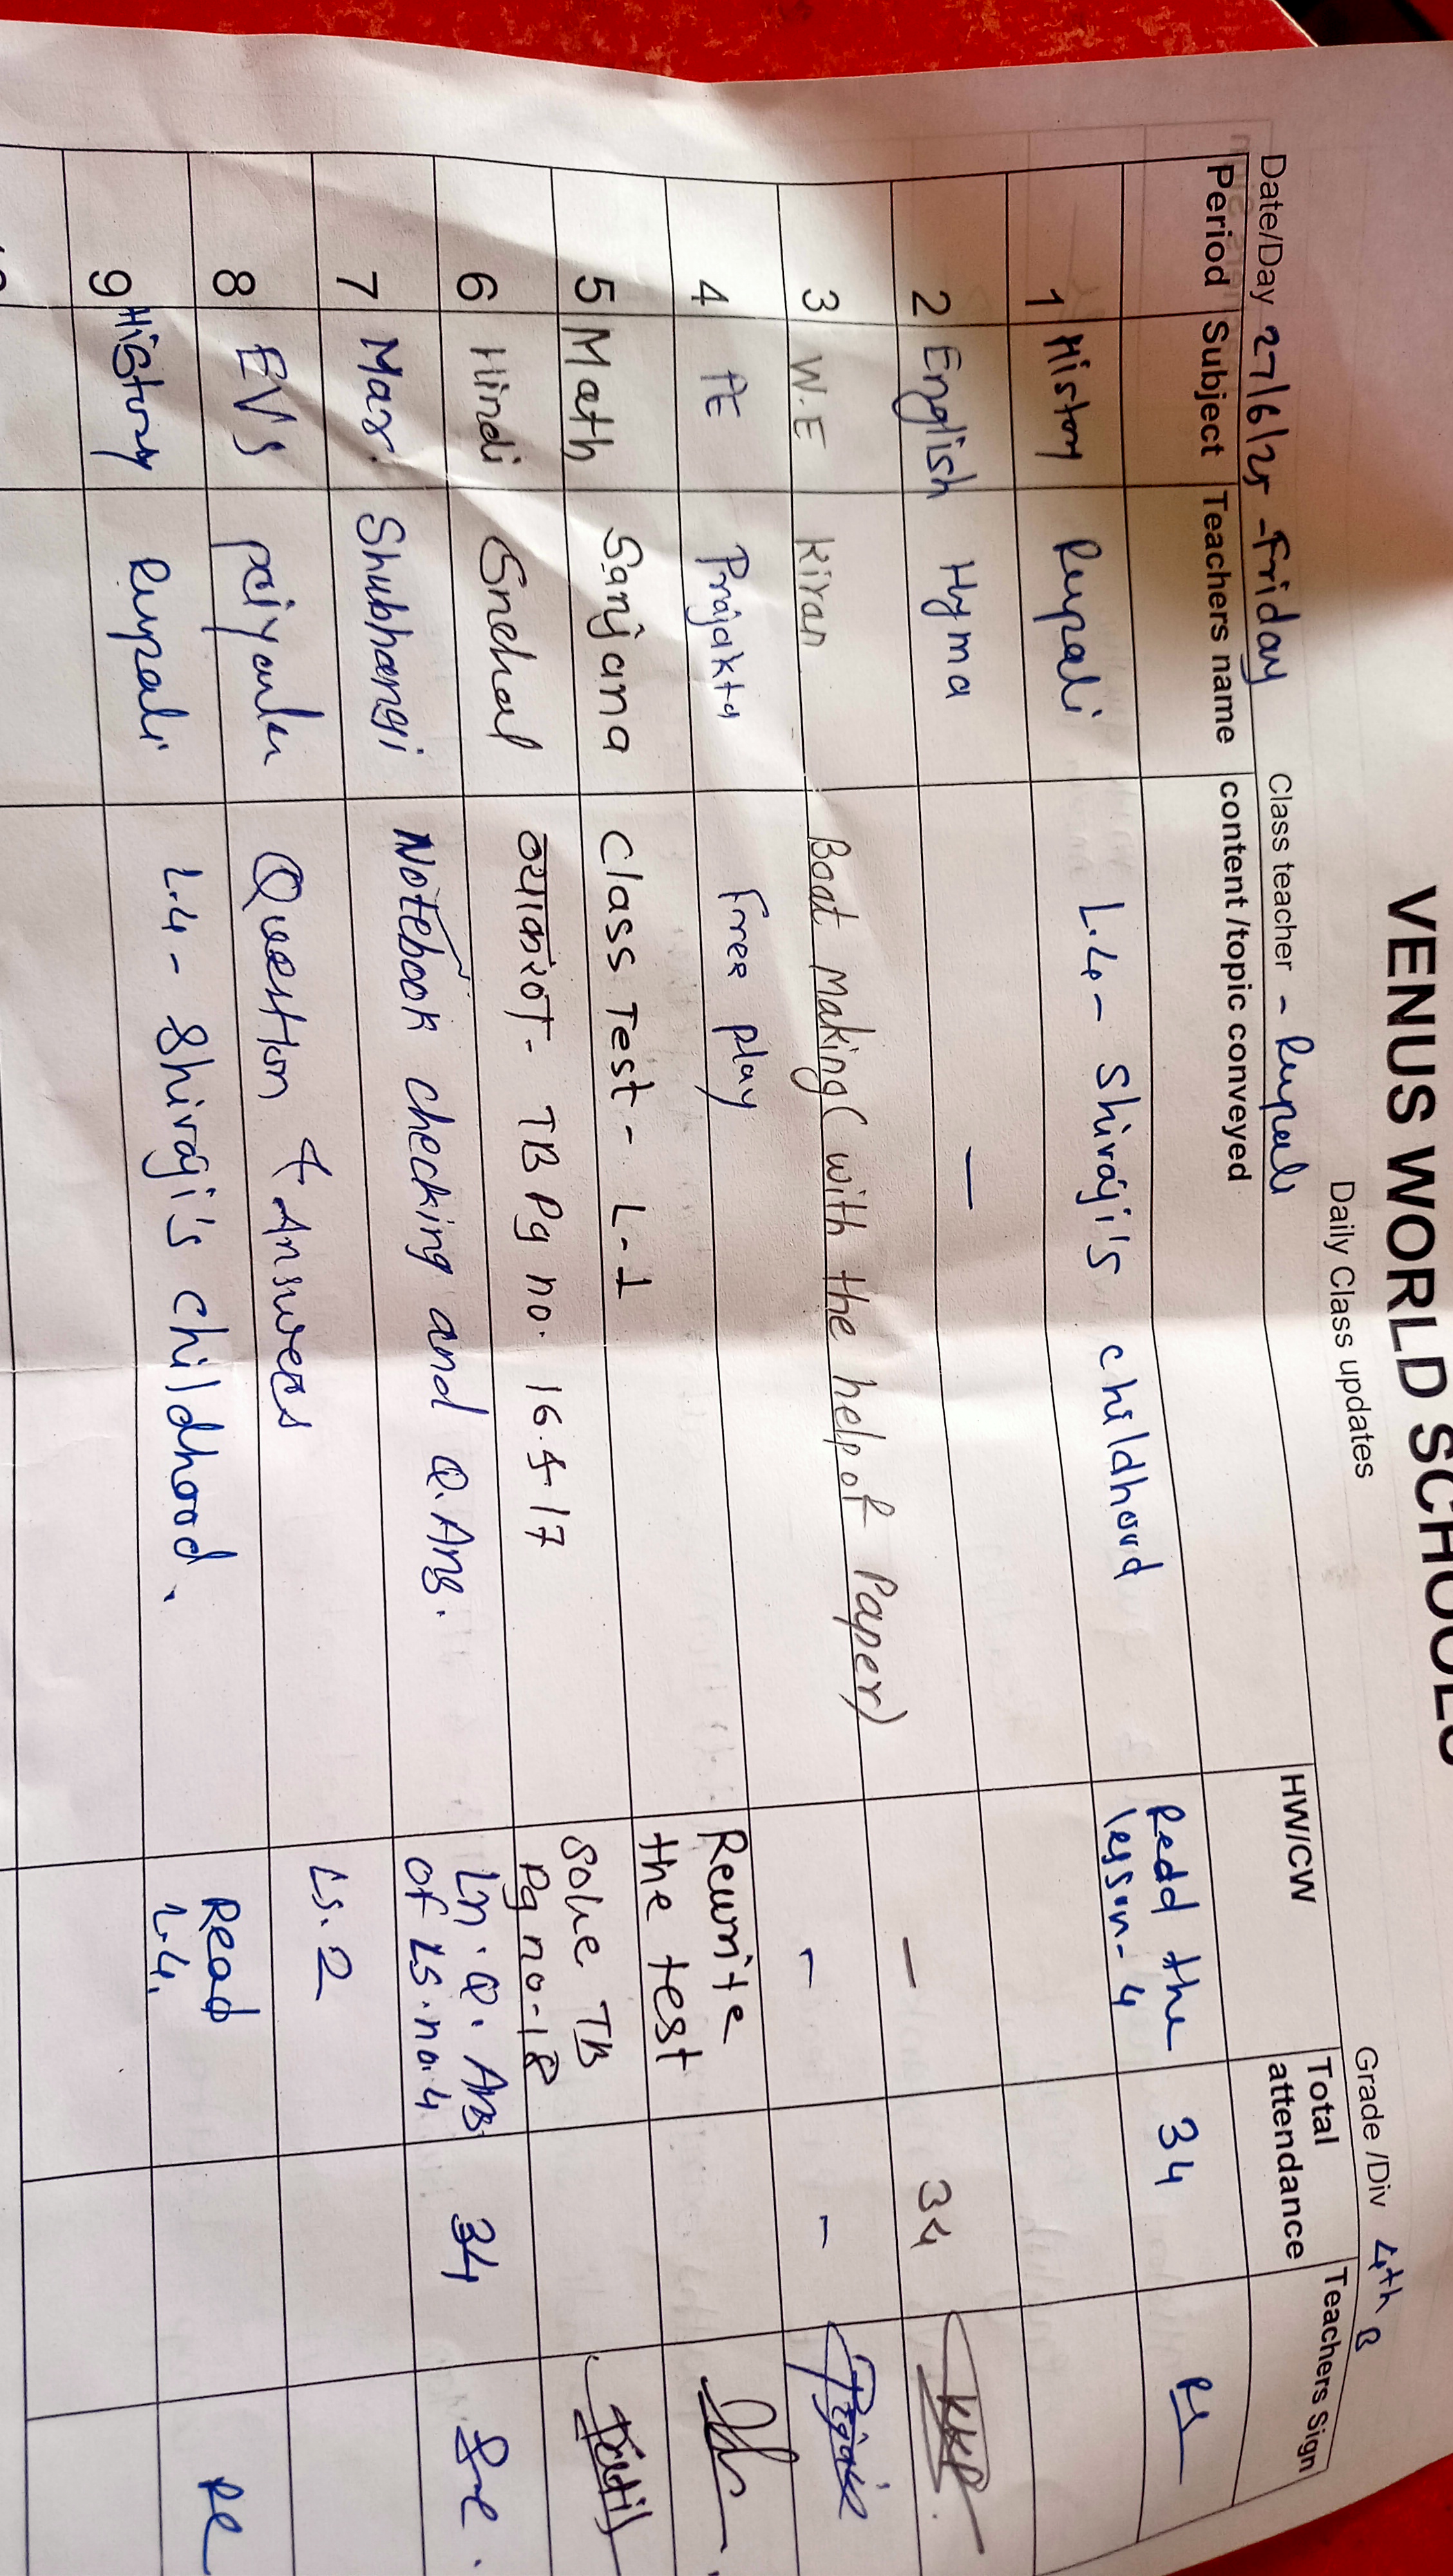 VENUS WORLD SCHOOL
Daily Class updates
Grade /Div 4th B
Date/Day 27/6/25 - Friday Class teacher - Rupali
Period Subject Teachers name content /topic conveyed HW/CW Total attendance Teachers Sign
1 History Rupali L.4 - Shivaji's childhood Read the lesson-4 34
2 English Hyma —
3 W.E Kiran Boat Making (with the help of Paper) — 34
4 PE Prajakta Free play - -
5 Math Sanjana Class Test - L-1 Rewrite the test
6 Hindi Snehal व्याकरण - TB Pg no. 16 & 17 Solve TB Pg no-18
7 Mar. Shubhangi Notebook checking and Q. Ans. Ln. Q. Ans of LS. no. 4 34
8 EVS Priyanka Question & Answers Ls. 2
9 History Rupali L.4 - Shivaji's childhood. Read L.4.